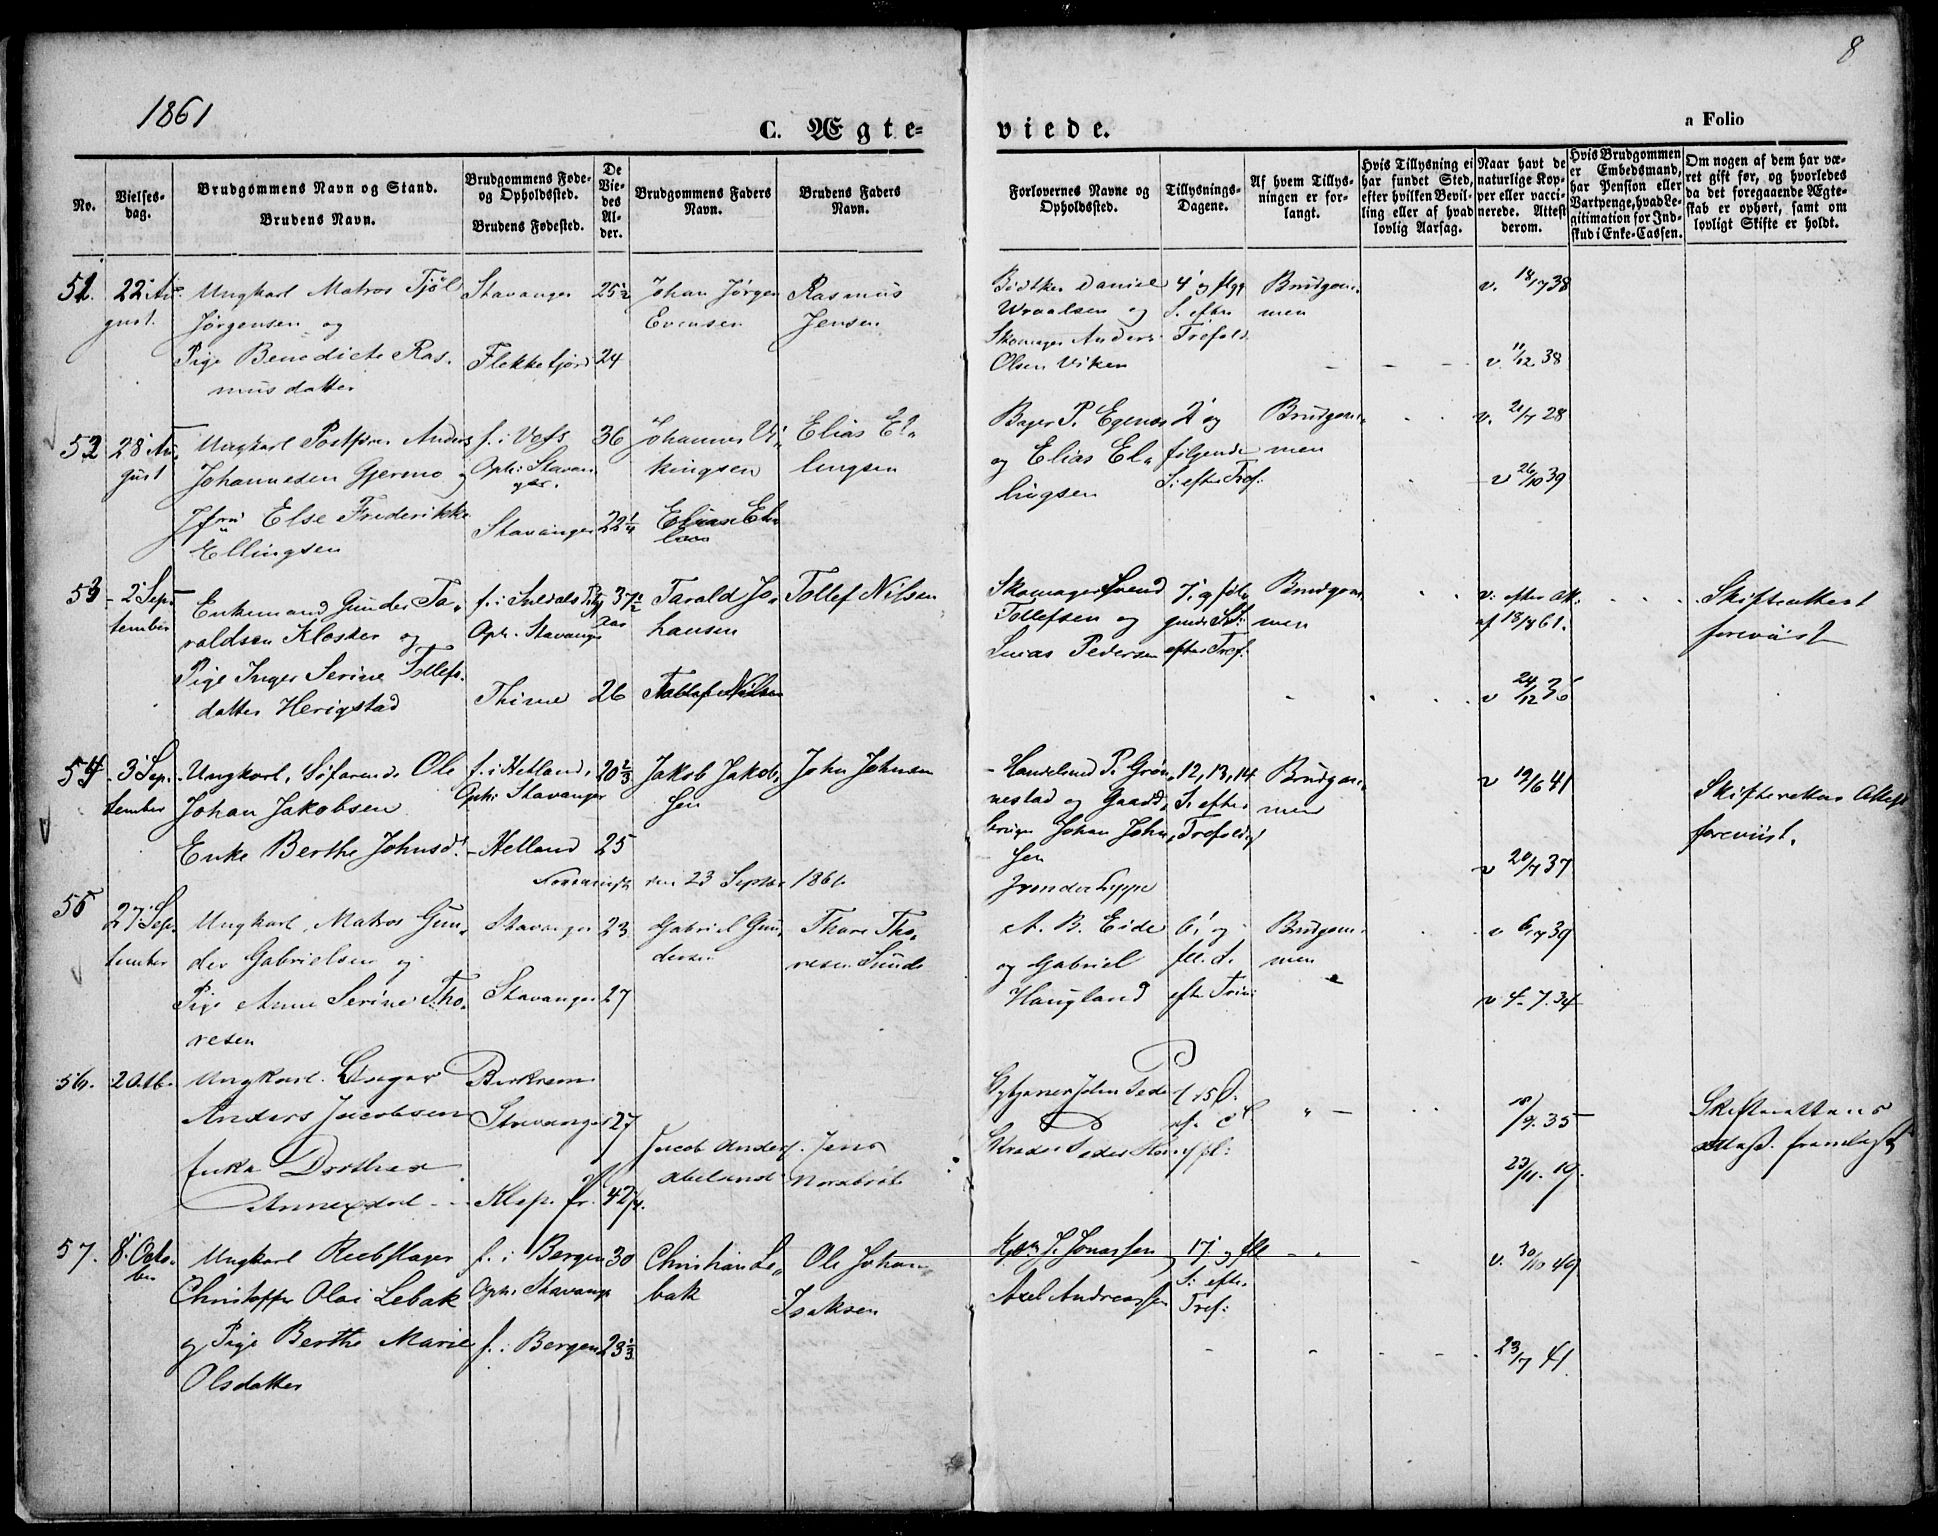 8
1861
C. Ægte-
viede.
a Folio
No.
Vielses-
dag.
Brudgommens Navn og Stand.
Brudens Navn.
Brudgommens Føde-
og Opholdssted.
Brudens Fødested.
De
Vie-
des
Al-
der.
Brudgommens Faders
Navn.
Brudens Faders
Navn.
Forlovernes Navne og
Opholdssted.
Tillysnings-
Dagene.
Af hvem Tillys-
ningen er for-
langt.
Hvis Tillysning ei
har fundet Sted,
efter hvilken Bevil-
ling eller af hvad
lovlig Aarsag.
Naar havt de
naturlige Kop-
per eller vacci-
nerede. Attest
derom.
Hvis Brudgommen
er Embedsmand,
har Pension eller
Vartpenge, hvad Le-
gitimation for Ind-
skud i Enke-Cassen.
Om nogen af dem har væ-
ret gift før, og hvorledes
da det foregaaende Ægte-
skab er ophørt, samt om
lovligt Skifte er holdt.
51.
22 Au-
gust.
Ungkarl Matros Tjøl
Jørgensen og
Pige Benedicte Ras-
musdatter
Stavanger
Flekkefjord
25½
24
Johan Jørgen
Evensen
Rasmus
Jensen
Bødtker Daniel
Wraalsen og
Skomager Anders
Olsen Viken
4' og flgg
S. efter
Trefold.
Brudgom-
men
v. 18/7 38
v. 11/12 38
52
28 Au-
gust
Ungkarl Postfører Anders
Johannesen Gjermo og
Jfru Else Frederikke
Ellingsen
f. i Vefs
Oph: Stavan-
ger.
Stavanger
36
22¼
Johannes Vi-
kingsen
Elias El-
lingsen
Bager P. Egenæs
og Elias El-
lingsen
2' og
følgende
S. efter Tref:
Brudgom-
men
v. 21/7 28
v 26/10 39
53
2 Sep-
tember
Enkemand Gunder Ta-
raldsen Kloster og
Pige Inger Serine Tollefs-
datter Herigstad
f. i Suldals Pgj
Oph. Stavanger
Thime
37½
Aar
26
Tarald Jo-
hansen
Tollef Nilsen
Tollef Nilsen
Skomager Svend
Tollefsen og
Lucas Pedersen
7' og føl-
gende S:
efter Tref:
Brudgom-
men
v. efter Att:
af 18/7 61.
v 24/12 36
Skifteattest
foreviist
54
3 Sep-
tember
Ungkarl, Søfarende Ole
Johan Jakobsen
Enke Berthe Johnsd.
f. i Hetland,
Oph: Stavanger
Hetland
20⅔
25
Jakob Jakob-
sen
John Johnsen
Handelsmd P. Grøn-
nestad og Gaard-
bruger Johan John-
sen
12, 13, 14
S. efter
Trefoldigh
Brudgom-
men
v 19/6 41
v 20/7 37
Skifterettens Attest
foreviist.
den 23 Septbr 1861.
55
27 Sep-
tember
Ungkarl, Matros Gun-
der Gabrielsen og
Pige Anne Serine Tho-
resen
Stavanger
Stavanger
23
27
Gabriel Gun-
dersen
Thore Tho-
resen Sunde
A. B. Eide
og Gabriel
Haugland
6' og
fll. S.
efter Trin:
Brudgom-
men
v 6/7 39
v 4. 7. 34
56.
2 Octb.
Ungkarl.
Anders Jacobsen
Enke Dorthea
Stavanger
Klep. Pr.
27
Jacob Anders
Jens
John Peder
15
18/9. 35
23/11. 19.
Skifterettens
Attest. fremlagt
57.
8' Octo-
ber
Ungkarl Reebslager
Christoffer Olai Lebak
og Pige Berthe Marie
Olsdatter
f. i Bergen
Oph: Stavanger
f. i Bergen
30
23⅓
Christian Le-
bak
Ole Johan
Isaksen
J. Jonassen
Axel Andreassen
17' og fll
S: efter
Tref:
v. 30/10 40
23/7 41